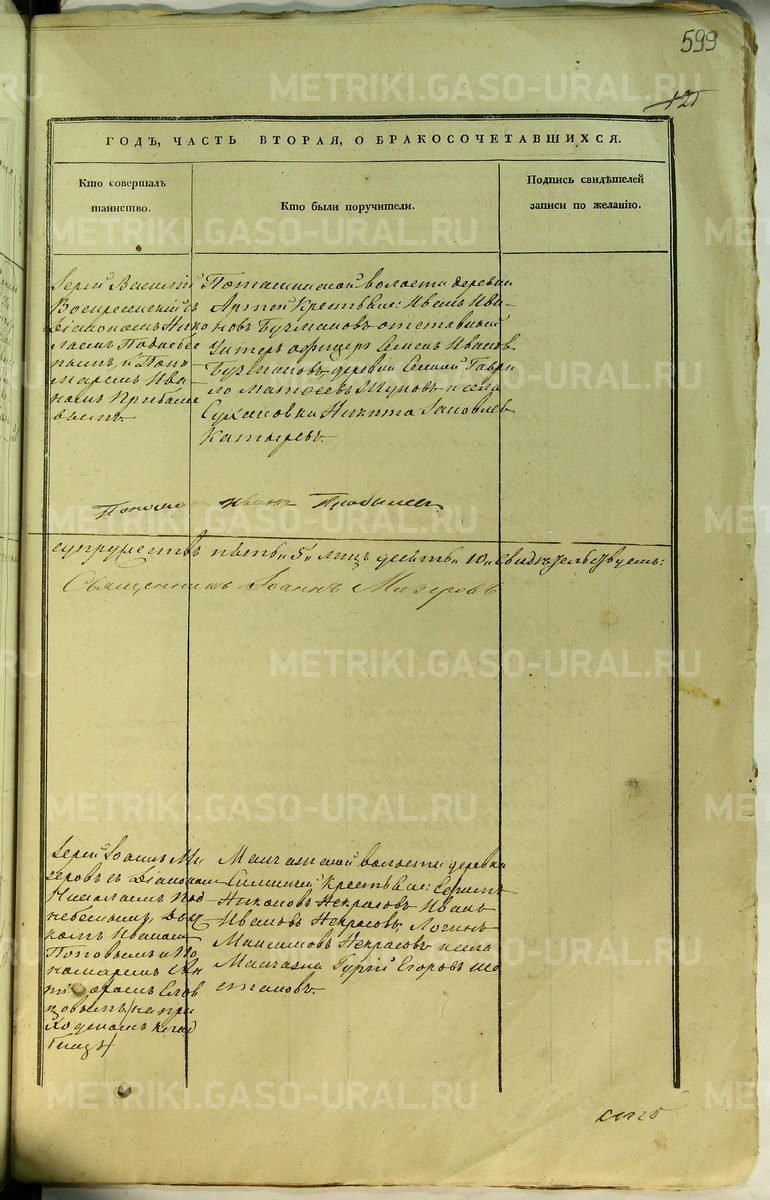 599
121
ГОДЪ, ЧАСТЬ ВТОРАЯ, О БРАКОСОЧЕТАВШИХСЯ.
Кто совершалъ
таинство.
Кто были поручители.
Подпись свидѣтелей
записи по желанію.
Іерей Василій
Воскресенскій съ
Діакономъ Нико
лаемъ Поднебе
снымъ, и Поно
маремъ Ива
номъ Прибыле
вымъ.
Поташинской волости деревни
Артей Крестьяне: Иванъ Ива-
новъ Бучмановъ отставной
Унтеръ офицеръ Семенъ Ивановъ
деревни Гаври
ло и села
Сухановки Никита Яковлевъ
супружествъ пять „5„ лицъ десять „10„ Свидѣтельствуемъ:
Священникъ Іоаннъ Мизеровъ
Іерей Іоаннъ Ми
зеровъ съ Діаконом
Николаемъ Под
небеснымъ, Дьяч
комъ Иваномъ
Поповымъ и По
номаремъ
на при
ходскомъ клад
бищѣ/
Манчажской волости деревни
Крестьяне:
Никоновъ Некрасовъ Иванъ
Ивановъ Некрасовъ, Логинъ
Максимовъ Некрасовъ и села
Манчажа Егоровъ
METRIKI.GASO-URAL.RU